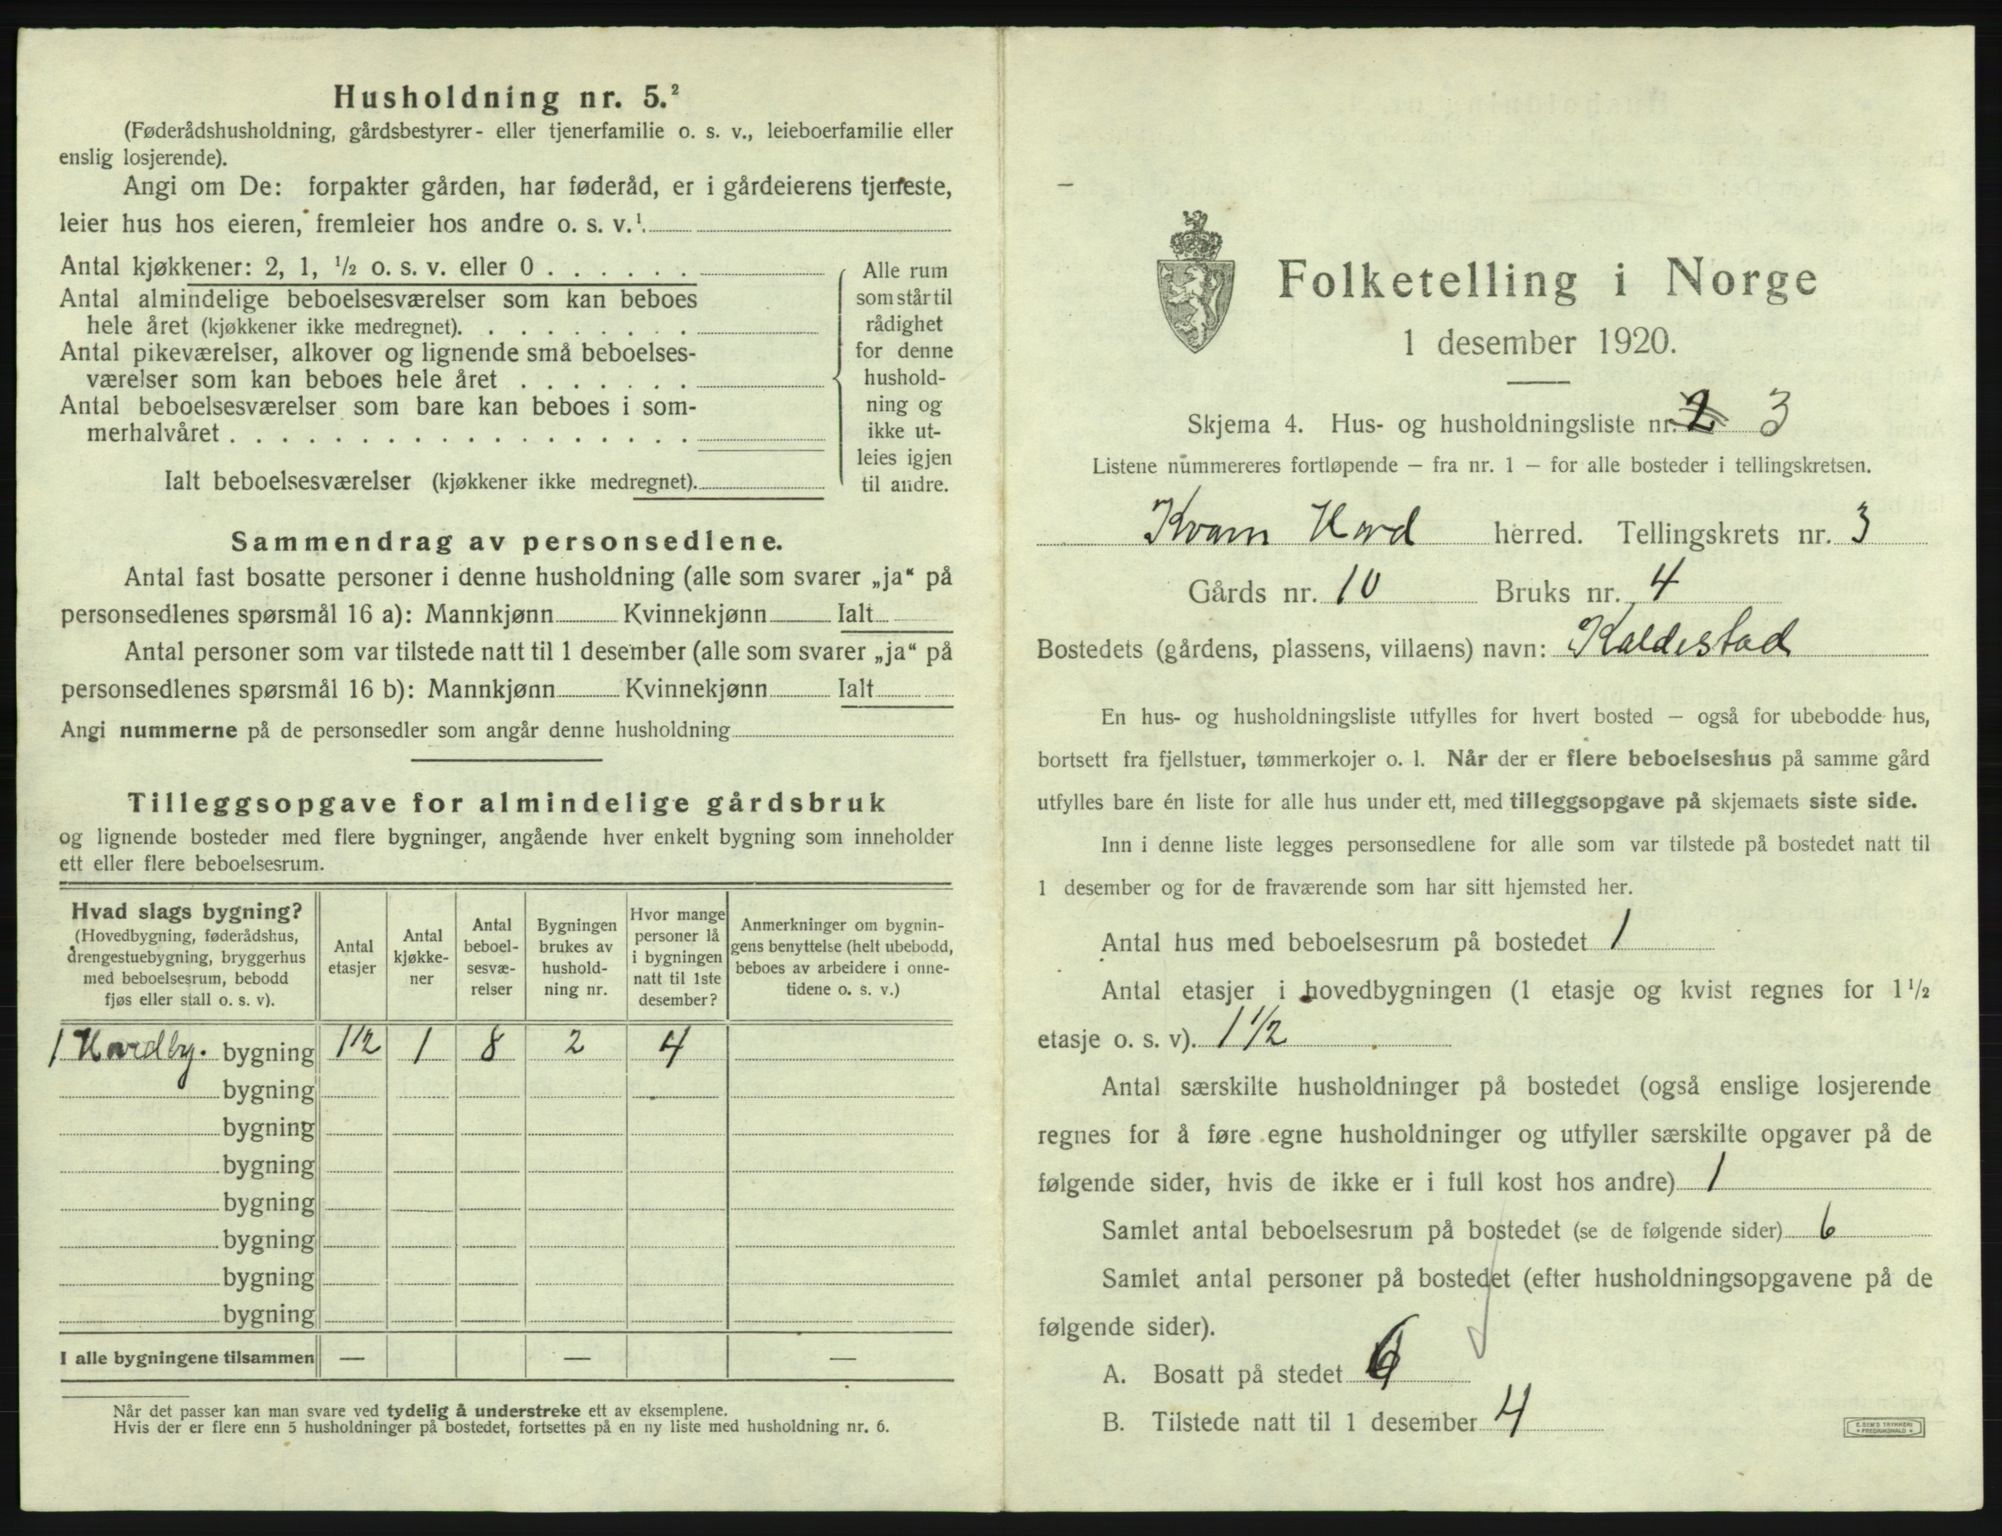 Husholdning nr. 5.²
(Føderådshusholdning, gårdsbestyrer- eller tjenerfamilie o. s. v., leieboerfamilie eller
enslig losjerende).
Angi om De: forpakter gården, har føderåd, er i gårdeierens tjeneste,
leier hus hos eieren, fremleier hos andre o. s. v.¹
Antal kjøkkener: 2, 1, ½ o. s. v. eller 0 . . . . . .
Antal almindelige beboelsesværelser som kan beboes
hele året (kjøkkener ikke medregnet). . . . . . . . .
Antal pikeværelser, alkover og lignende små beboelses-
værelser som kan beboes hele året . . . . . . .
Antal beboelsesværelser som bare kan beboes i som-
merhalvåret . . . . . . . . . . . . . . . . . .
Ialt beboelsesværelser (kjøkkener ikke medregnet).
Alle rum
som står til
rådighet
for denne
hushold-
ning og
ikke ut-
leies igjen
til andre.
Sammendrag av personsedlene.
Antal fast bosatte personer i denne husholdning (alle som svarer „ja“ på
personsedlenes spørsmål 16 a): Mannkjønn Kvinnekjønn Ialt
Antal personer som var tilstede natt til 1 desember (alle som svarer „ja“ på
personsedlenes spørsmål 16 b): Mannkjønn Kvinnekjønn Ialt
Angi nummerne på de personsedler som angår denne husholdning
Tilleggsopgave for almindelige gårdsbruk
og lignende bosteder med flere bygninger, angående hver enkelt bygning som inneholder
ett eller flere beboelsesrum.
Hvad slags bygning?
(Hovedbygning, føderådshus,
drengestuebygning, bryggerhus
med beboelsesrum, bebodd
fjøs eller stall o. s. v).
Antal
etasjer
Antal
kjøkke-
ner
Antal
beboel-
sesvæ-
relser
Bygningen
brukes av
hushold-
ning nr.
Hvor mange
personer lå
i bygningen
natt til 1ste
desember?
Anmerkninger om bygnin-
gens benyttelse (helt ubebodd,
beboes av arbeidere i onne-
tidene o. s. v.)
1 Hovedby. bygning 1½ 1 8 2 4
bygning
bygning
bygning
bygning
bygning
bygning
bygning
I alle bygningene tilsammen — — —
Når det passer kan man svare ved tydelig å understreke ett av eksemplene.
Hvis der er flere enn 5 husholdninger på bostedet, fortsettes på en ny liste med husholdning nr. 6.
Folketelling i Norge
1 desember 1920.
Skjema 4. Hus- og husholdningsliste nr. 2 3
Listene nummereres fortløpende – fra nr. 1 – for alle bosteder i tellingskretsen.
Kvam Hord herred. Tellingskrets nr. 3
Gårds nr. 10 Bruks nr. 4
Bostedets (gårdens, plassens, villaens) navn: Kaldestad
En hus- og husholdningsliste utfylles for hvert bosted – også for ubebodde hus,
bortsett fra fjellstuer, tømmerkojer o. l. Når der er flere beboelseshus på samme gård
utfylles bare én liste for alle hus under ett, med tilleggsopgave på skjemaets siste side.
Inn i denne liste legges personsedlene for alle som var tilstede på bostedet natt til
1 desember og for de fraværende som har sitt hjemsted her.
Antal hus med beboelsesrum på bostedet 1
Antal etasjer i hovedbygningen (1 etasje og kvist regnes for 1½
etasje o. s. v). 1½
Antal særskilte husholdninger på bostedet (også enslige losjerende
regnes for å føre egne husholdninger og utfyller særskilte opgaver på de
følgende sider, hvis de ikke er i full kost hos andre) 1
Samlet antal beboelsesrum på bostedet (se de følgende sider) 6
Samlet antal personer på bostedet (efter husholdningsopgavene på de
følgende sider).
A. Bosatt på stedet 6
B. Tilstede natt til 1 desember 4
E. SEM'S TRYKKERI
FREDRIKSHALD